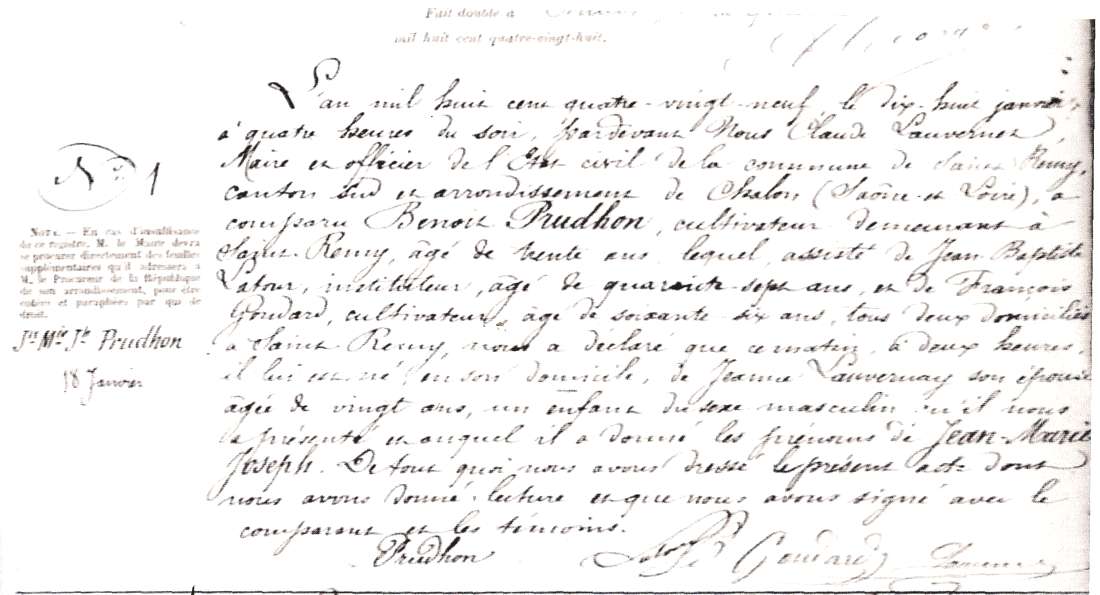 Fait double à
mil huit cent quatre-vingt-huit.
L'an mil huit cent quatre-vingt-neuf, le dix-huit janvier
à quatre heures du soir, pardevant Nous Claude Lauvernet
Maire et officier de l'Etat civil de la commune de Saint Rémy,
canton Sud et arrondissement de Chalon (Saône-et-Loire), a
comparu Benoit Prudhon, cultivateur demeurant à
Saint-Remy, âgé de trente ans, lequel, assisté de Jean Baptiste
Latour, instituteur, âgé de quarante-sept ans, et de François
Goudard, cultivateur, âgé de soixante-six ans, tous deux domiciliés
à Saint-Remy, nous a déclaré que ce matin, à deux heures,
il lui est né, en son domicile, de Jeanne Lauvernay son épouse
âgée de vingt ans, un enfant du sexe masculin qu'il nous
a présenté et auquel il a donné les prénoms de Jean-Marie
Joseph. De tout quoi nous avons dressé le présent acte dont
nous avons donné lecture et que nous avons signé avec le
comparant et les témoins.
Prudhon Goudard
N° 1
NOTA. — En cas d'insuffisance
de ce registre, M. le Maire devra
se procurer directement des feuilles
supplémentaires qu'il adressera à
M. le Procureur de la République
de son arrondissement, pour être
cotées et paraphées par qui de
droit.
Jn Mie Jh Prudhon
18 Janvier